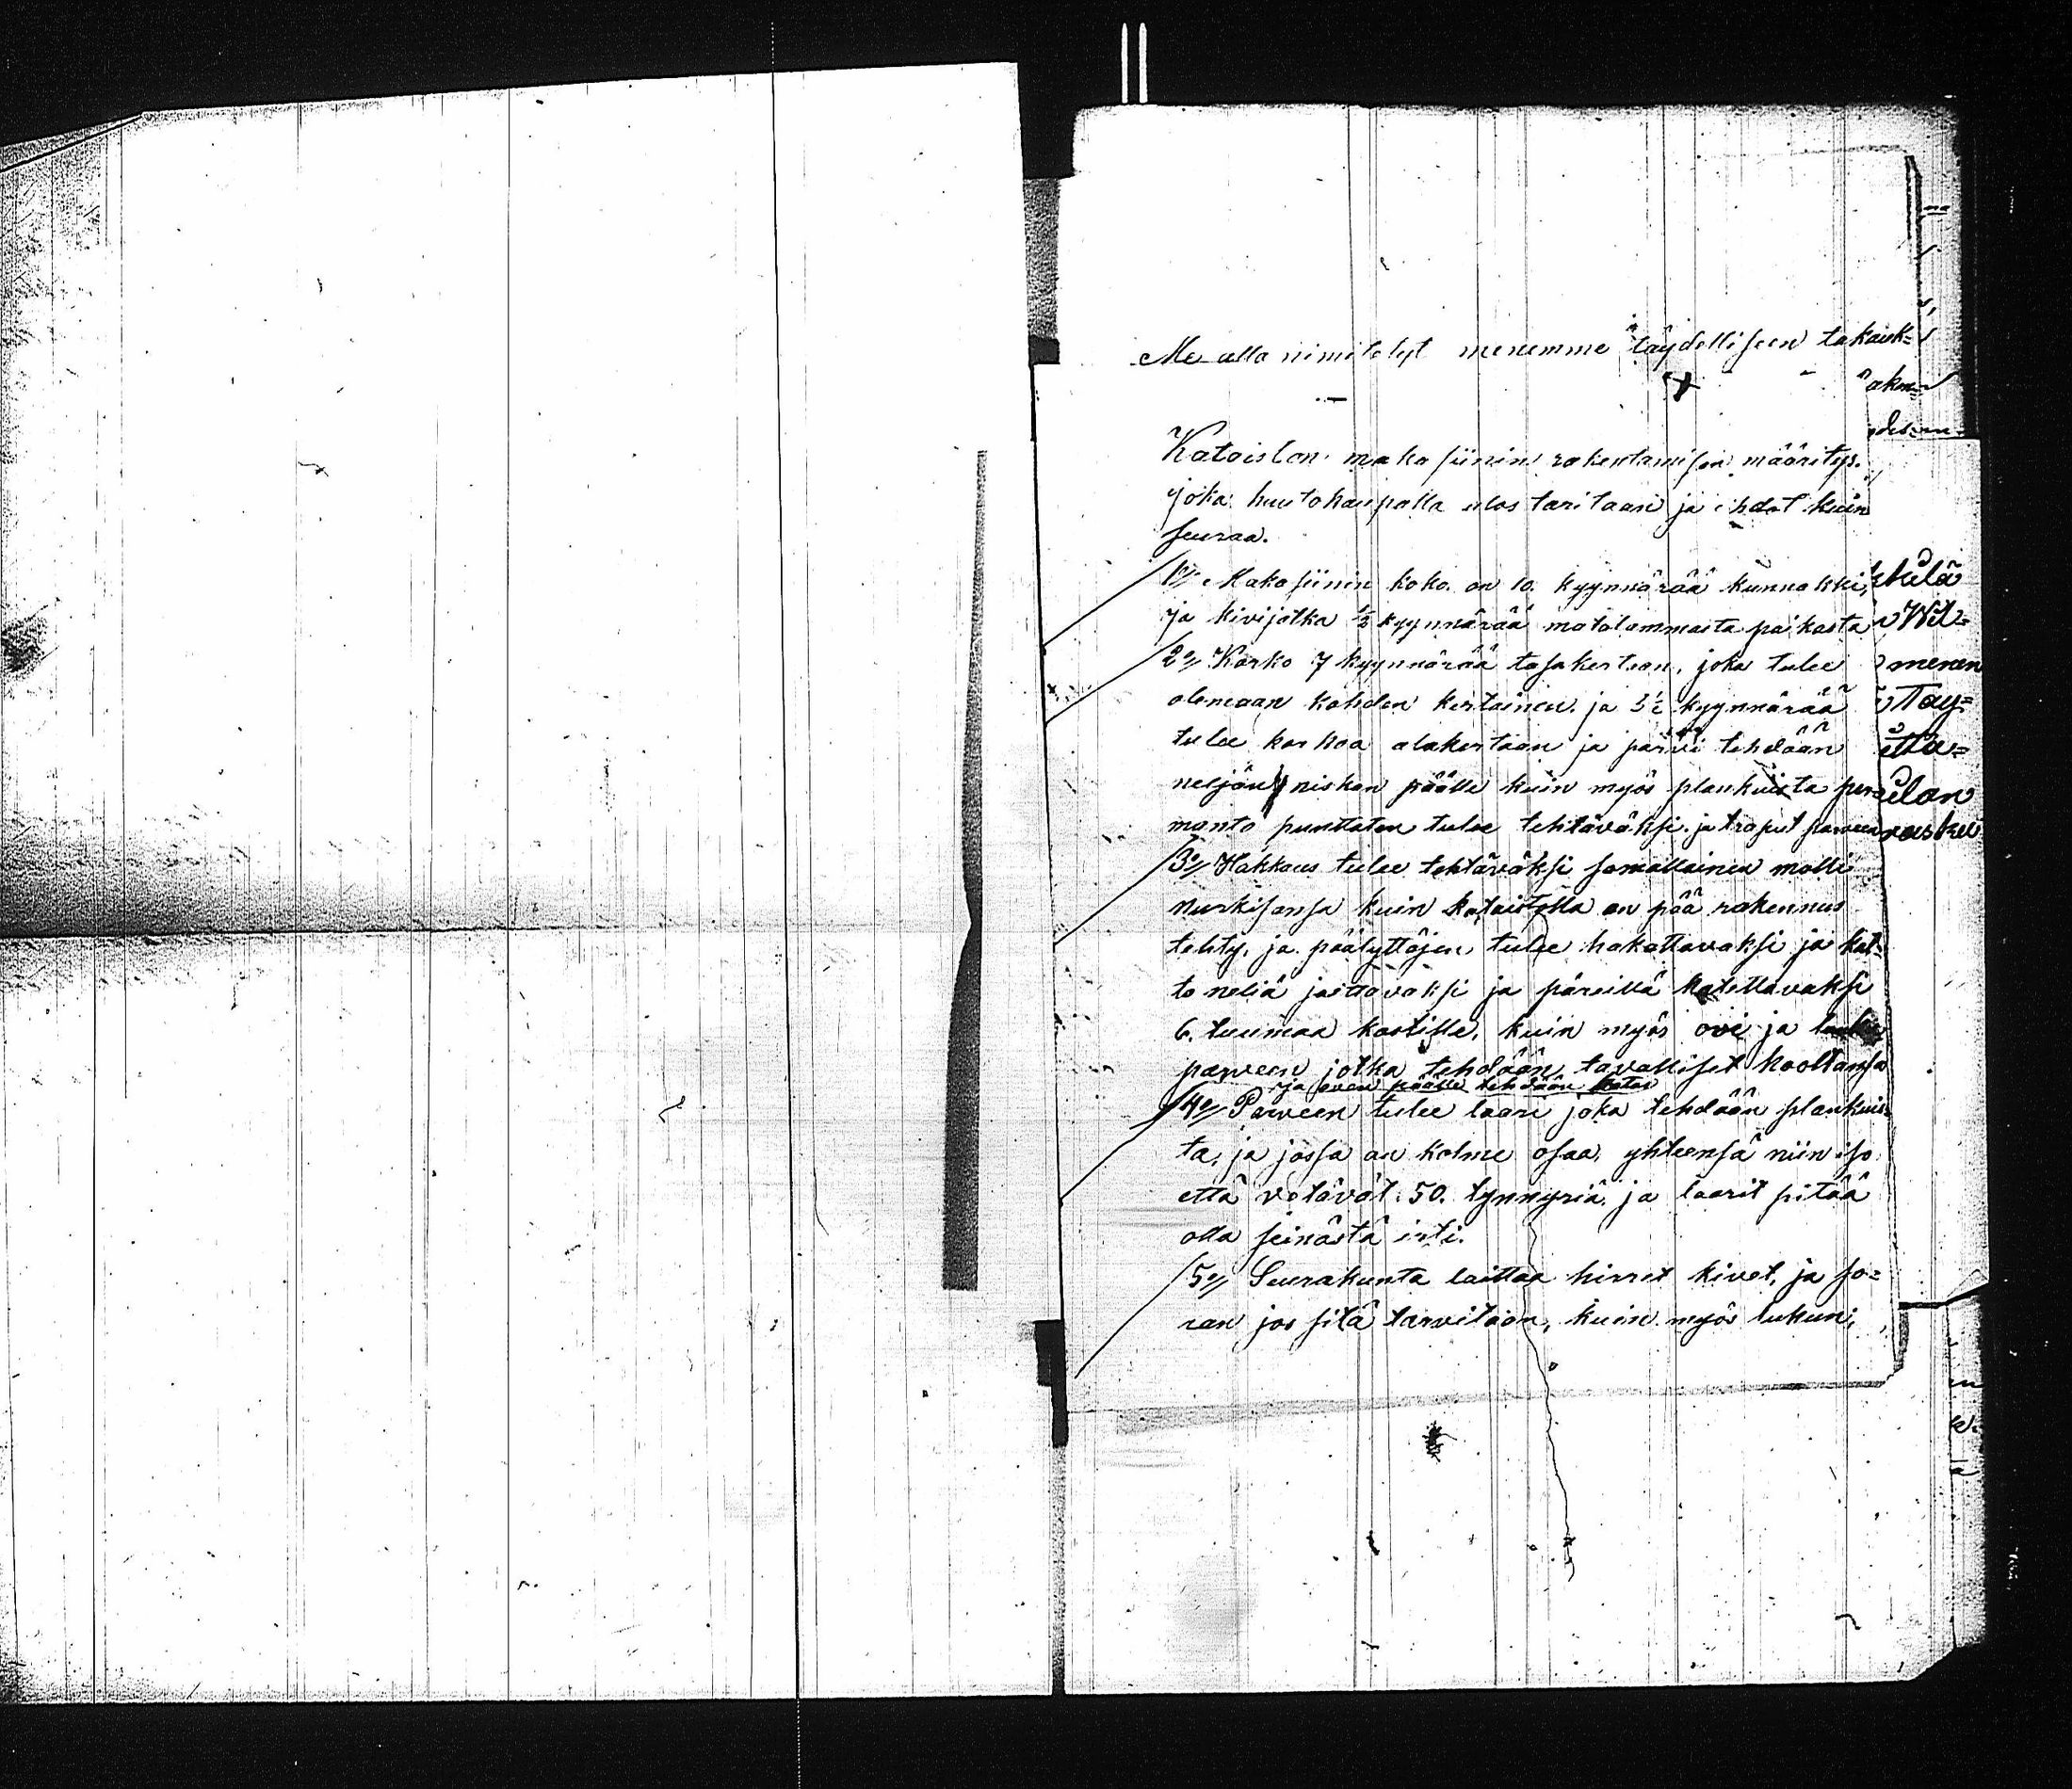 Me alla nimitetyt menemme täydelliseen takauk=
aken=
Kataiston makasiinin rakentamisen määritys.
joka huutokaupalla ulos taritaan ja ehdot kuin
seuraa.
1o/ Makasiinin koko on 10. kyynnärää kunnakki,
ja kivijalka ½ kyynnärää matalammasta paikasta
2o/ Korko 7 kyynnärää tasakertaan, joka tulee
olemaan kahden kertainen. ja 3½ kyynnärää
tulee korkoa alakertaan ja parvi tehdään
neljän niskan päälle kuin myös plankuista per
manto punttaten tulee tehtäväksi. ja traput parveen
3o/ Hakkaus tulee tehtäväksi samallainen malli
nurkisansa kuin kataistolla on pää rakennus
tehty, ja päätyttöjen tulee hakattavaksi ja kat=
to neliä jaettavaksi ja päreillä katettavaksi
6. tuumaa kastille, kuin myös ovi ja
parveen jotka tehdään tavalliset kooltansa
ja oven päälle tehdään katos
4o/ Parveen tulee laari joka tehdään plankuis
ta, ja jossa on kolme osaa, yhteensä niin iso
että vetävät 50. tynnyriä ja laarit pitää
olla seinästä irti.
5o/ Seurakunta laittaa hirret kivet, ja so=
ran jos sitä tarvitaan, kuin myös lukun,
Wil=
menen
Täy=